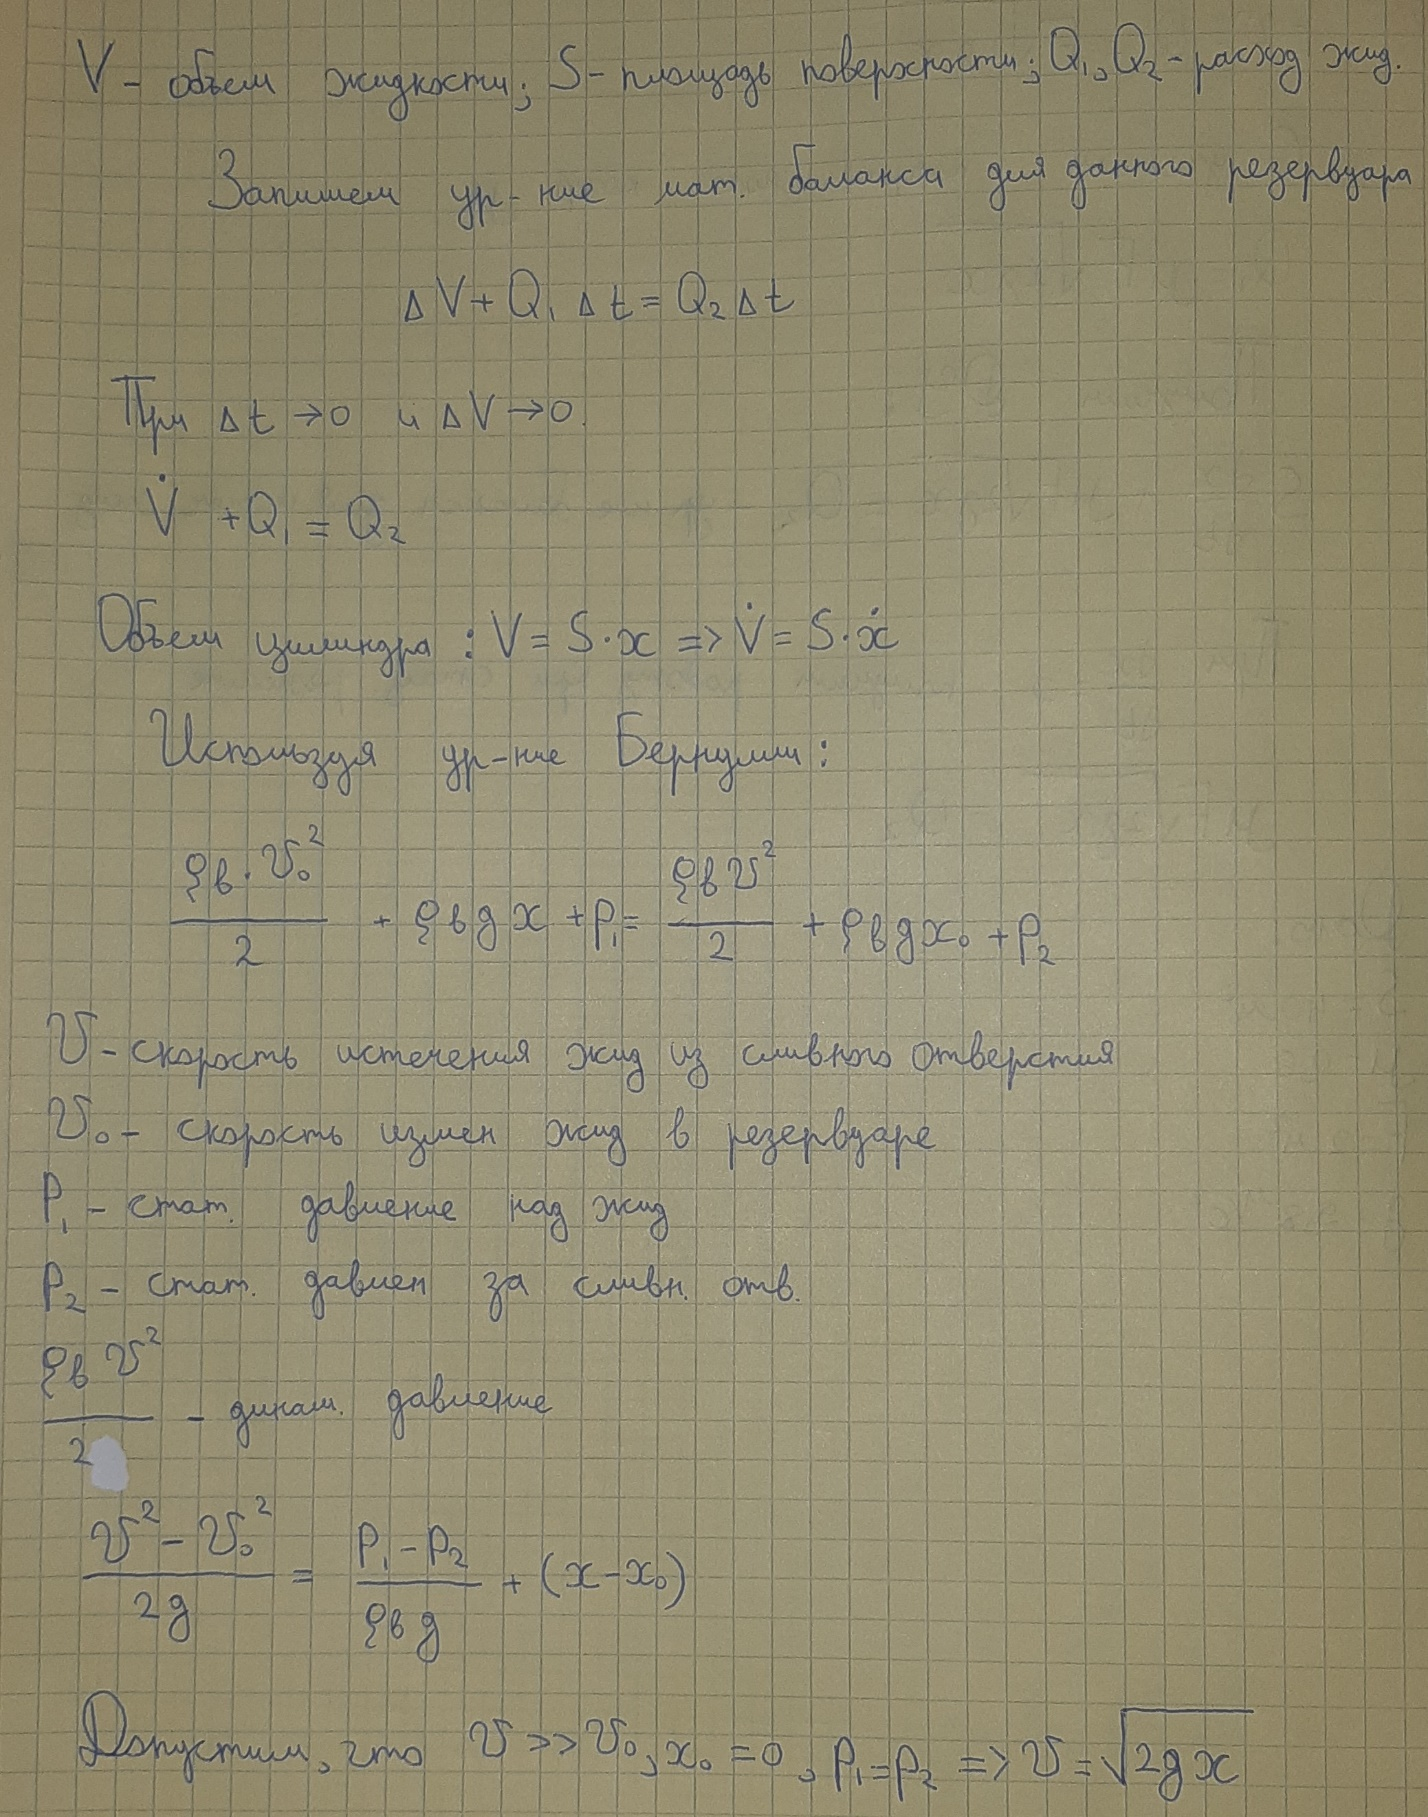 V - объем жидкости; S - площадь поверхности; Q₁, Q₂ - расход жид.
Запишем ур-ние мат. баланса для данного резервуара
ΔV + Q₁ Δt = Q₂ Δt
При Δt → 0 и ΔV → 0.
V̇ + Q₁ = Q₂
Объем цилиндра : V = S · x => V̇ = S · ẋ
Используя ур-ние Бернулли :
ρв · v₀² / 2 + ρв g x + p₁ = ρв v² / 2 + ρв g x₀ + p₂
v - скорость истечения жид из сливного отверстия
v₀ - скорость измен жид в резервуаре
P₁ - стат. давление над жид
P₂ - стат. давлен за сливн. отв.
ρв v² / 2 - динам. давление
(v² - v₀²) / 2g = (P₁ - P₂) / ρв g + (x - x₀)
Допустим, что v >> v₀, x₀ = 0, p₁ = p₂ => v = √2gx